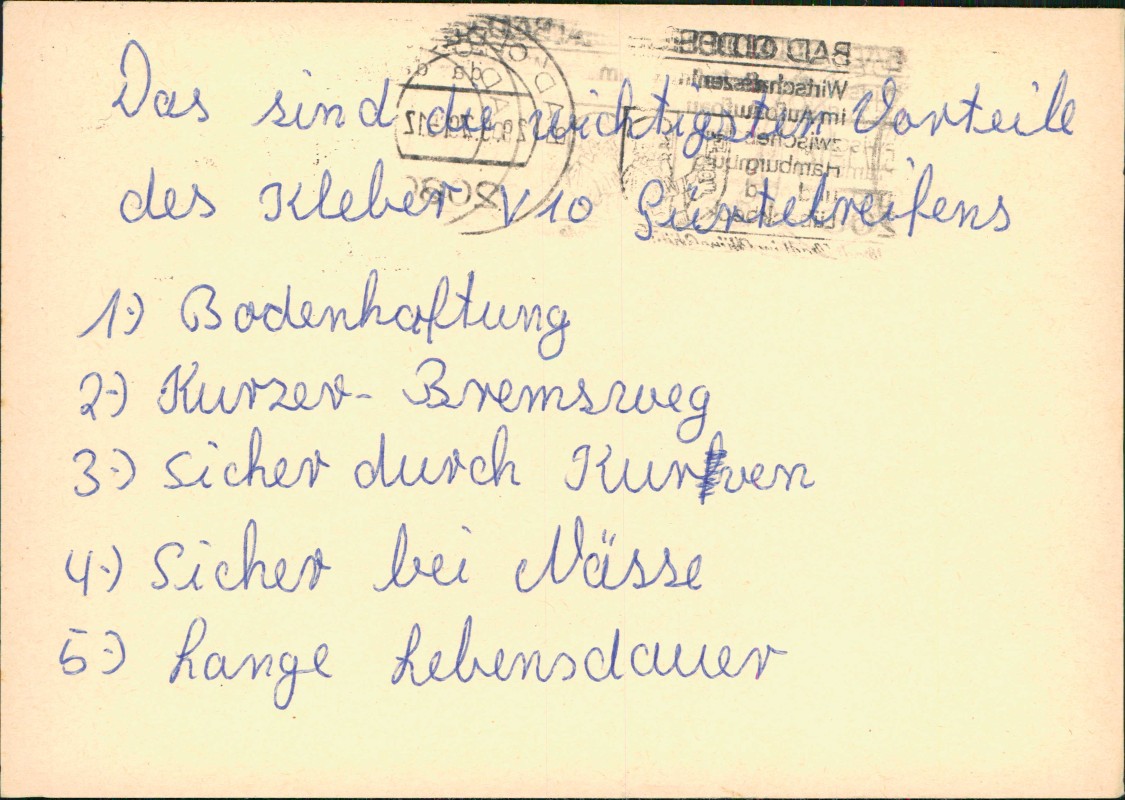 Das sind die wichtigsten Vorteile
des Kleber V10 Gürtelreifens
1.) Bodenhaftung
2.) Kurzer- Bremsweg
3.) Sicher durch Kurven
4.) Sicher bei Nässe
5.) Lange Lebensdauer
BAD OLDESLOE
Wirtschaftszentrum
im Aufbau
zwischen
Hamburg
und